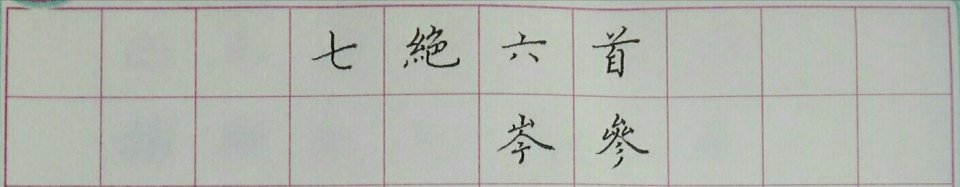 七絕六首
岑參